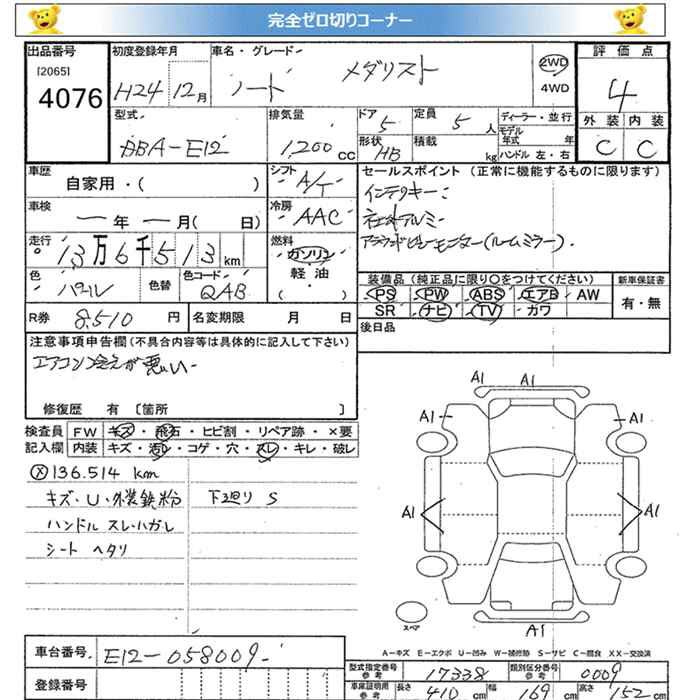 完全ゼロ切りコーナー
出品番号 初度登録年月 車名・グレード 評価点
[2065]
4076 H24 12月 ノート メダリスト 2WD 4WD 4
型式 排気量 ドア 定員 ディーラー・並行 外装 内装
DBA-E12 1,200cc 5 5人 モデル年式 年 C C
形状 積載 ハンドル 左・右
HB kg
車歴 シフト セールスポイント(正常に機能するものに限ります)
自家用・( ) A/T インテリキー:
車検 冷房 社外アルミ
ー年ー月( 日) AAC アラウンドビューモニター(ルームミラー).
走行 燃料
13万6千513km ガソリン・軽油・( )
色 色替 色コード 装備品(純正品に限り○をつけてください) 新車保証書
パール QAB PS PW ABS エアB AW 有・無
SR ナビ TV カワ
R券 8,510円 名変期限 月 日 後日品
注意事項申告欄(不具合内容等は具体的に記入して下さい)
エアコン冷えが悪い.
修復歴 有 [箇所 ]
検査員 FW キズ・飛石・ヒビ割・リペア跡・×要
記入欄 内装 キズ・汚レ・コゲ・穴・スレ・キレ・破レ
A1 A1
A1 A1
ⓧ136.514 km
キズ・U・外装鉄粉 下廻りS
A1 A1
ハンドル スレ・ハガレ
シート ヘタリ
スペア
A1
A-キズ E-エクボ U-凹み W-補修跡 S-サビ C-腐食 XX-交換済
車台番号 E12-058009-
登録番号
型式指定番号 参考 17338 類別区分番号 参考 0009
車庫証明用 参考 長さ 410cm 幅 169cm 高さ 152cm